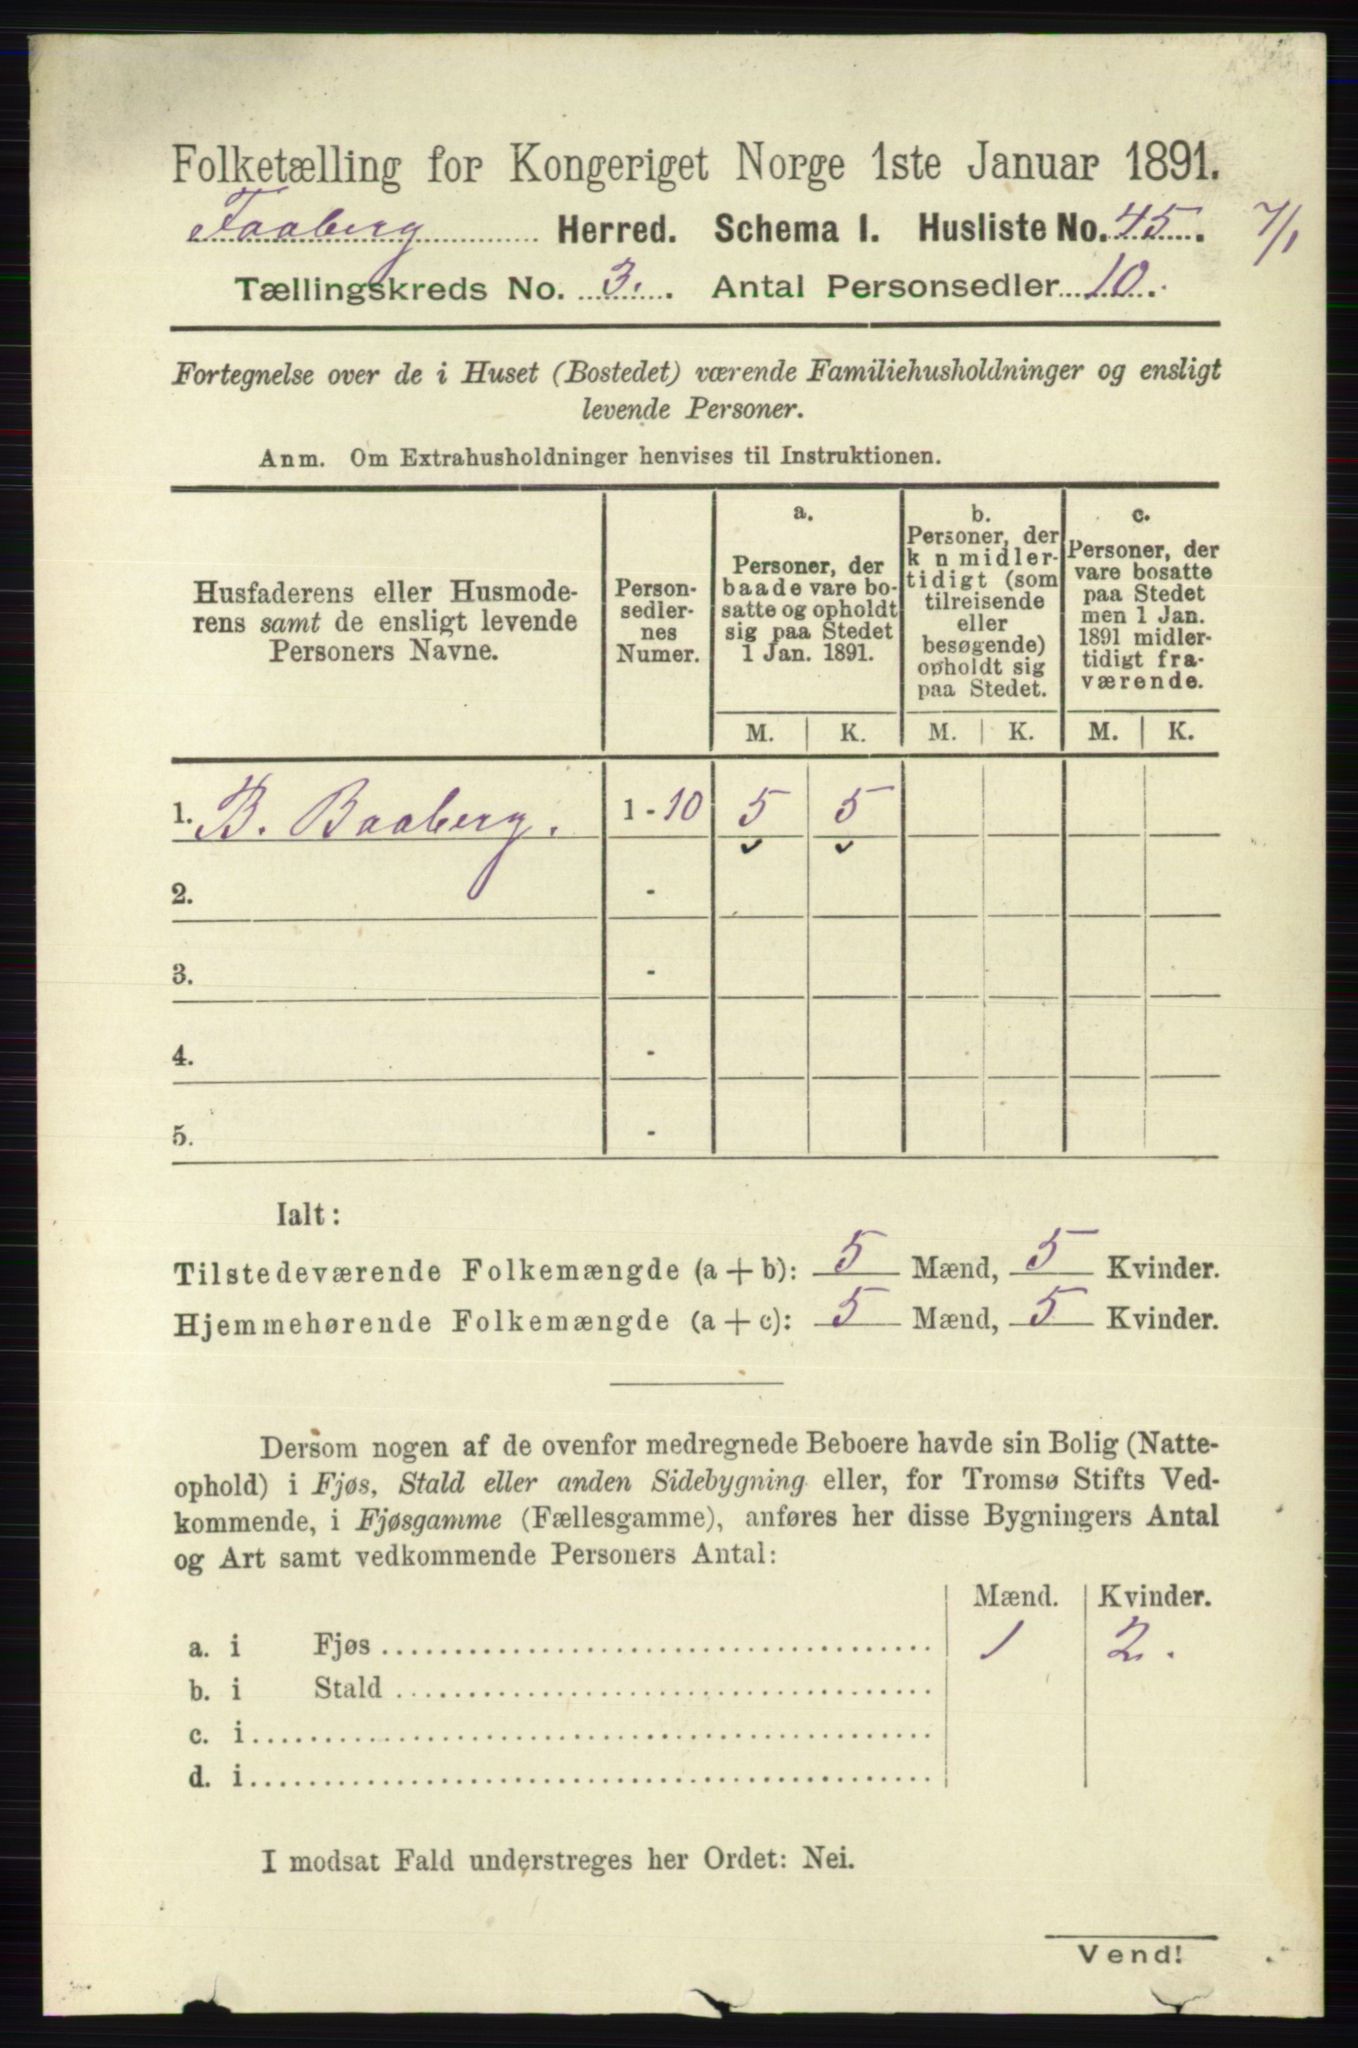 Folketælling for Kongeriget Norge 1ste Januar 1891.
Faaberg Herred. Schema I. Husliste No. 45. 7/1
Tællingskreds No. 3. Antal Personsedler 10.
Fortegnelse over de i Huset (Bostedet) værende Familiehusholdninger og ensligt
levende Personer.
Anm. Om Extrahusholdninger henvises til Instruktionen.
Husfaderens eller Husmode-
rens samt de ensligt levende
Personers Navne.
Person-
sedler-
nes
Numer.
a.
Personer, der
baade vare bo-
satte og opholdt
sig paa Stedet
1 Jan. 1891.
b.
Personer, der
k n midler-
tidigt (som
tilreisende
eller
besøgende)
opholdt sig
paa Stedet.
c.
Personer, der
vare bosatte
paa Stedet
men 1 Jan.
1891 midler-
tidigt fra-
værende.
M. K. M. K. M. K.
1. B. Baaberg. 1 - 10 5 5
2. -
3. -
4. -
5. -
Ialt:
Tilstedeværende Folkemængde (a + b): 5 Mænd, 5 Kvinder.
Hjemmehørende Folkemængde (a + c): 5 Mænd, 5 Kvinder.
Dersom nogen af de ovenfor medregnede Beboere havde sin Bolig (Natte-
ophold) i Fjøs, Stald eller anden Sidebygning eller, for Tromsø Stifts Ved-
kommende, i Fjøsgamme (Fællesgamme), anføres her disse Bygningers Antal
og Art samt vedkommende Personers Antal:
Mænd. Kvinder.
a. i Fjøs 1 2.
b. i Stald
c. i
d. i
I modsat Fald understreges her Ordet: Nei.
Vend!